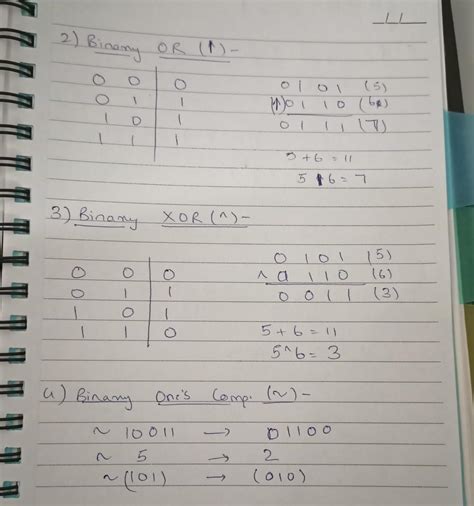 2) Binary OR (|) -
0 0 | 0
0 1 | 1
1 0 | 1
1 1 | 1
0 1 0 1 (5)
(|) 0 1 1 0 (6)
0 1 1 1 (7)
5 + 6 = 11
5 | 6 = 7
3) Binary XOR (^) -
0 0 | 0
0 1 | 1
1 0 | 1
1 1 | 0
0 1 0 1 (5)
^ 0 1 1 0 (6)
0 0 1 1 (3)
5 + 6 = 11
5 ^ 6 = 3
4) Binary One's Comp. (~) -
~ 10011 → 01100
~ 5 → 2
~ (101) → (010)